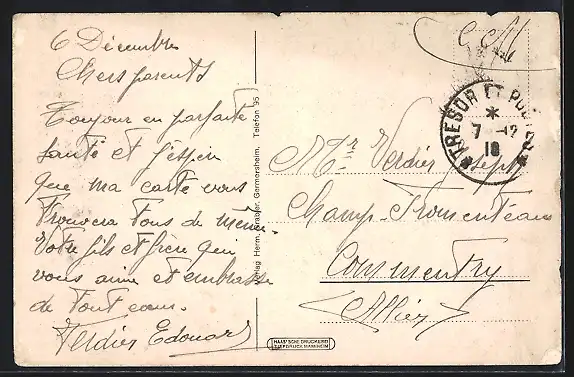 6 Décembre
Chers parents
Toujour en parfaite
santé et j'espère
que ma carte vous
trouvera tous de même.
Votre fils et frère qui
vous aime et embrasse
de tout coeur.
Verdier Edouard
Verlag Herm. Grabler, Germersheim. Telefon 95
F.M.
TRESOR ET POSTES
*
7 -12
18
Mr. Verdier Joseph
Champ-Fromenteau
Commentry
(Allier)
HAAS'SCHE DRUCKEREI
TIEFDRUCK MANNHEIM